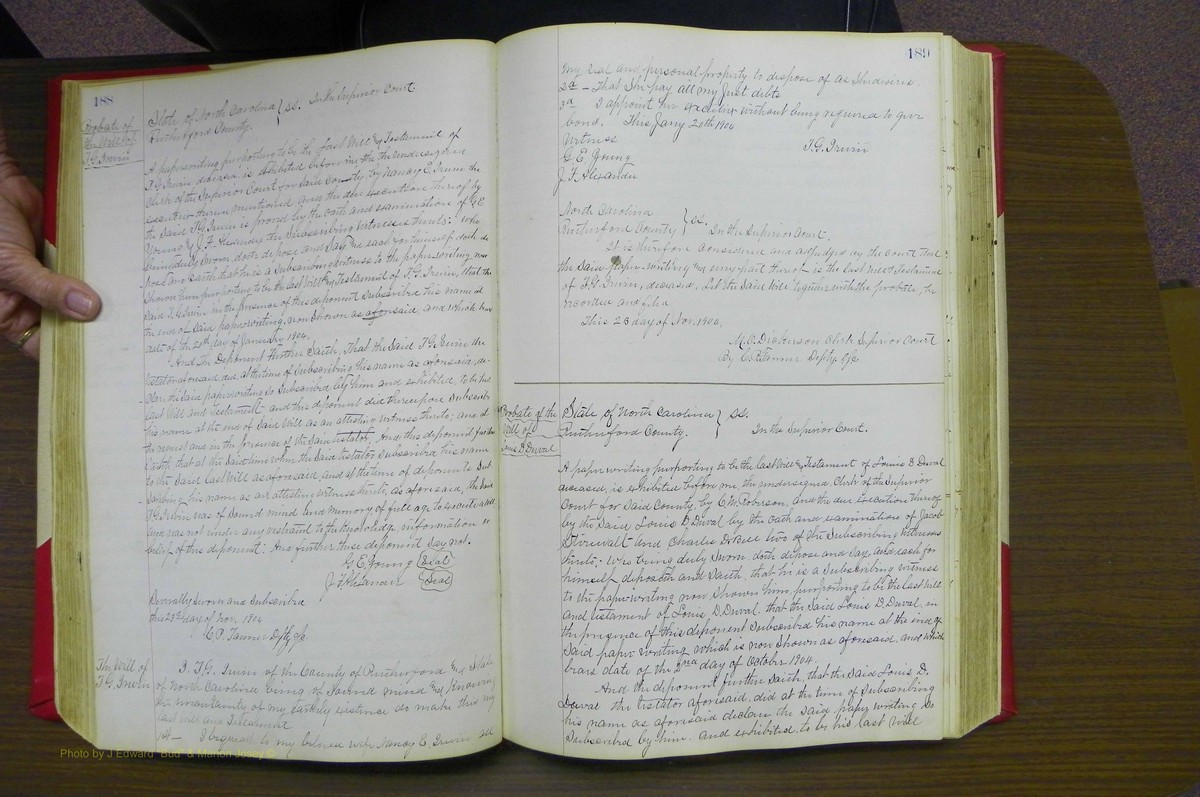 188
Probate of
the Will of
T.G. Irwin
State of North Carolina } SS. In the Superior Court.
Rutherford County.
A paperwriting purporting to be the Last Will & Testament of
T.G. Irwin deceased is exhibited before me the undersigned
Clerk of the Superior Court for said County, by Nancy E. Irwin the
executrix therein mentioned and the due execution thereof by
the said T.G. Irwin is proved by the oath and examination of G.E.
Young & J.F. Alexander the Subscribing witnesses thereto: who
being duly sworn doth depose and say and each for himself doth de-
pose and saith that he is a Subscribing witness to the paperwriting now
shown him purporting to be the last Will & Testament of T.G. Irwin, that the
said T.G. Irwin in the presence of this deponent Subscribed his name at
the end of said paperwriting, now shown as aforesaid, and which bears
date of the 20th day of January 1904.
And The Deponent Further Saith, That the Said T.G. Irwin the
testator aforesaid did, at the time of Subscribing his name as aforesaid, de-
clare the said paperwriting so Subscribed by him and exhibited, to be his
Last Will and Testament and this deponent did thereupon Subscribe
his name at the end of said Will as an attesting witness thereto; and at
the request and in the presence of the said testator. And this deponent further
saith that at the said time when the said testator Subscribed his name
to the said last Will as aforesaid and at the time of deponents Sub-
scribing his name as an attesting witness thereto, as aforesaid, the said
T.G. Irwin was of sound mind and memory of full age to execute a will
and was not under any restraint to the knowledge, information or
belief of this deponent: And further these deponent say not.
G.E. Young (Seal)
J.F. Alexander (Seal)
Severally Sworn and Subscribed
this 23rd day of Nov. 1904
C.P. Tanner Dpty Clk
The Will of
T.G. Irwin
I. T.G. Irwin of the County of Rutherford and State
of North Carolina being of Sound mind and Knowing
the uncertainty of my earthly existence do make this my
last will and Testament
1st— I bequeath to my beloved wife Nancy E. Irwin all
189
my real and personal property to dispose of as she desires.
2d — That She pay all my just debts
3d I appoint her executrix without being required to give
bond. This Jany 20th 1904
Witness T.G. Irwin
G.E. Young
J.F. Alexander
North Carolina
Rutherford County } SS. In the Superior Court.
It is therefore considered and adjudged by the Court that
the said paper-writing & every part thereof is the last Will & Testament
of T.G. Irwin, deceased. Let the said Will together with the probate, be
recorded and filed
This 23 day of Nov. 1904.
M.O. Dickerson Clerk Superior Court
By C.P. Tanner Dpty Clk
Probate of the
Will of
Louis D. Duval
State of North Carolina } SS.
Rutherford County. In the Superior Court.
A paper writing purporting to be the last Will & Testament of Louis D. Duval
deceased, is exhibited before me, the undersigned Clerk of the Superior
Court for said County, by C.M. Robinson, and the due execution thereof
by the said Louis D. Duval by the oath and examination of Jacob
Stirewalt and Charles D. two of the Subscribing witnesses
thereto; Who being duly Sworn doth depose and say, and each for
himself deposeth and saith, that he is a Subscribing witness
to the paperwriting now Shown him, purporting to be the last Will
and testament of Louis D. Duval, that the said Louis D. Duval, in
the presence of this deponent Subscribed his name at the end of
said paper writing which is now Shown as aforesaid, and which
bears date of the day of October 1904.
And the deponent further Saith, that the said Louis D.
Duval the testator aforesaid, did at the time of Subscribing
his name as aforesaid declare the said paper writing So
Subscribed by him and exhibited to be his last Will
Photo by J Edward "Bud" & Marion Josey ©